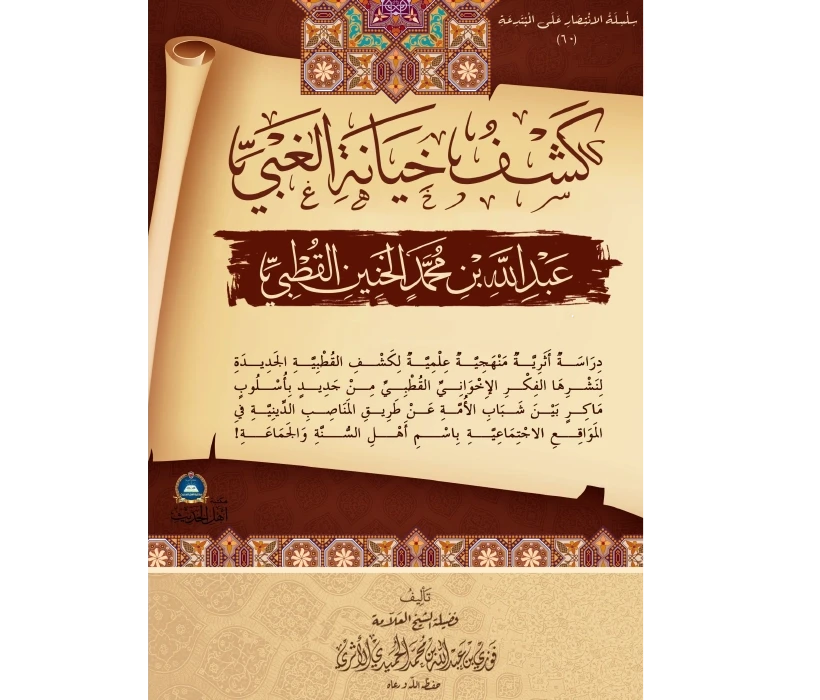 سِلْسِلَةُ الانْتِصَارِ عَلَى المُبْتَدِعَةِ
(٦٠)
كَشْفُ خِيَانَةِ الغَبِيِّ
عَبْدِ اللَّهِ بْنِ مُحَمَّدٍ الخَنِينِ القُطْبِيِّ
دِرَاسَةٌ أَثَرِيَّةٌ مَنْهَجِيَّةٌ عِلْمِيَّةٌ لِكَشْفِ القُطْبِيَّةِ الجَدِيدَةِ
لِنَشْرِهَا الفِكْرِ الإِخْوَانِيِّ القُطْبِيِّ مِنْ جَدِيدٍ بِأُسْلُوبٍ
مَاكِرٍ بَيْنَ شَبَابِ الأُمَّةِ عَنْ طَرِيقِ المَنَاصِبِ الدِّينِيَّةِ فِي
المَوَاقِعِ الاجْتِمَاعِيَّةِ بِاسْمِ أَهْلِ السُّنَّةِ وَالجَمَاعَةِ!
مكتبة
أهل الحديث
تَأْلِيفُ
فضيلة الشيخ العلامة
فوزي بن عبد الله بن محمد الحميدي الأثري
حفظه الله ورعاه